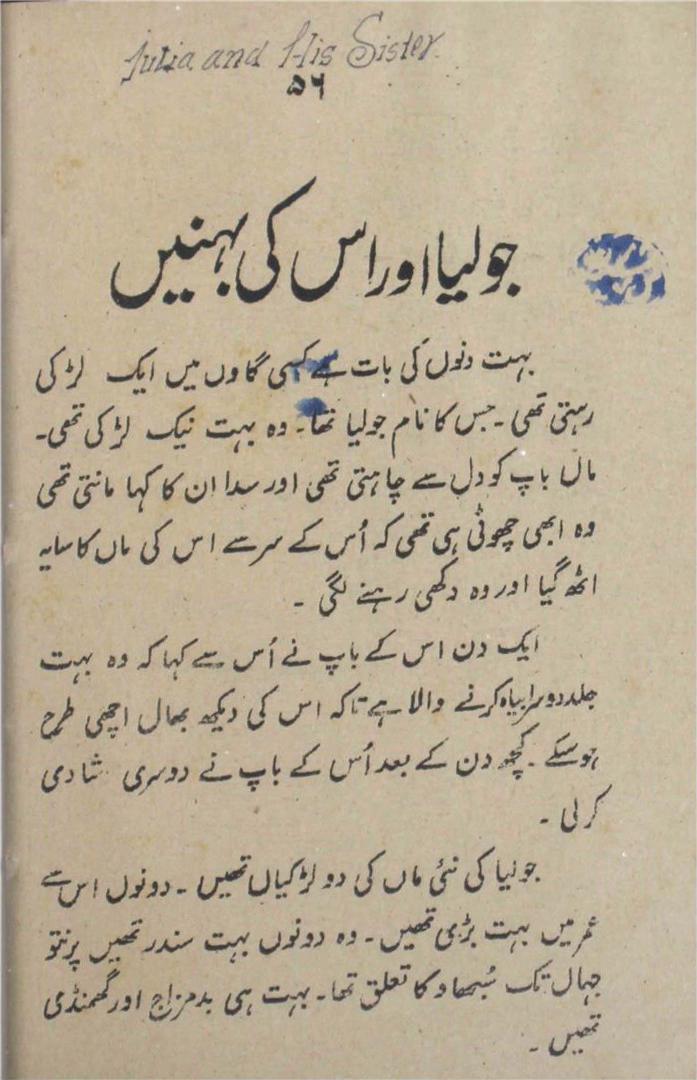 Julia and His Sister.
۵۶
جولیا اور اس کی بہنیں
بہت دنوں کی بات ہے کسی گاوں میں ایک لڑکی
رہتی تھی۔ جس کا نام جولیا تھا۔ وہ بہت نیک لڑکی تھی۔
ماں باپ کو دل سے چاہتی تھی اور سدا ان کا کہا مانتی تھی
وہ ابھی چھوٹی ہی تھی کہ اُس کے سر سے اس کی ماں کا سایہ
اٹھ گیا اور وہ دکھی رہنے لگی ۔
ایک دن اس کے باپ نے اُس سے کہا کہ وہ بہت
جلد دوسرا بیاہ کرنے والا ہے تاکہ اس کی دیکھ بھال اچھی طرح
ہو سکے ۔ کچھ دن کے بعد اُس کے باپ نے دوسری شادی
کر لی ۔
جولیا کی نئی ماں کی دو لڑکیاں تھیں ۔ دونوں اس سے
عمر میں بہت بڑی تھیں ۔ وہ دونوں بہت سندر تھیں پرنتو
جہاں تک سُبھاو کا تعلق تھا۔ بہت ہی بدمزاج اور گھمنڈی
تھیں ۔